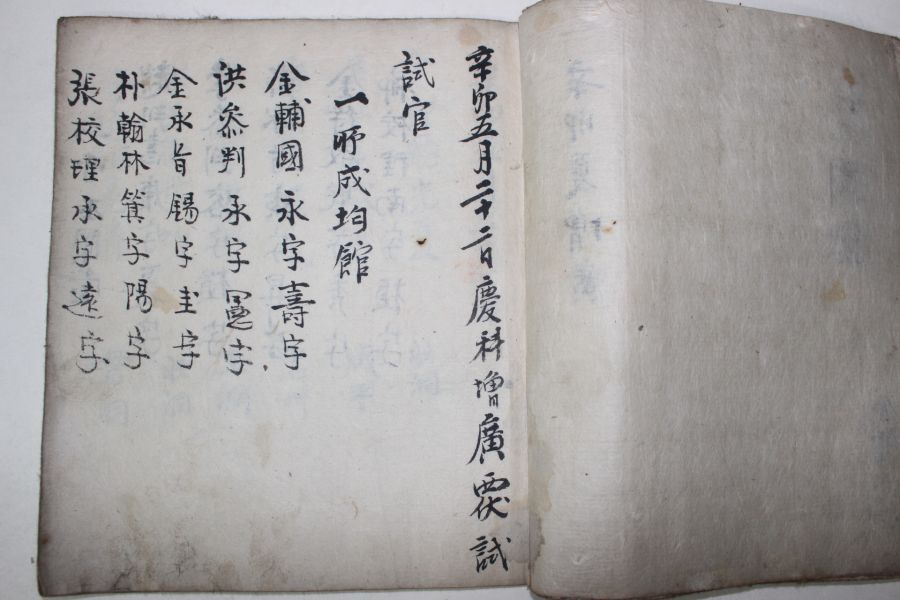 辛卯五月二十二日慶科增廣覆試
試官
一所成均館
金輔國永字壽字
洪叅判承字憲字
金承旨錫字圭字
朴翰林箕字陽字
張校理承字遠字